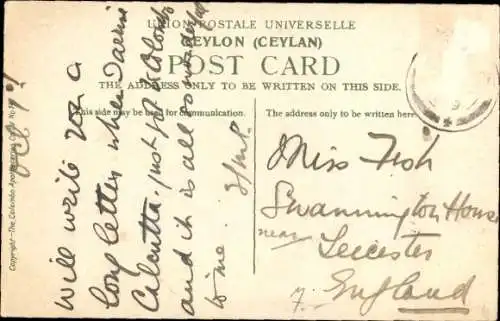 UNION POSTALE UNIVERSELLE
CEYLON (CEYLAN)
POST CARD
THE ADDRESS ONLY TO BE WRITTEN ON THIS SIDE.
This side may be used for communication.
The address only to be written here.
Will write you a
long letter when I arrive
Calcutta, just got to Colombo
and it is all so wonderful
to me.
Miss Fish
Swannington House
near Leicester
England
Copyright—The Colombo Apothecaries